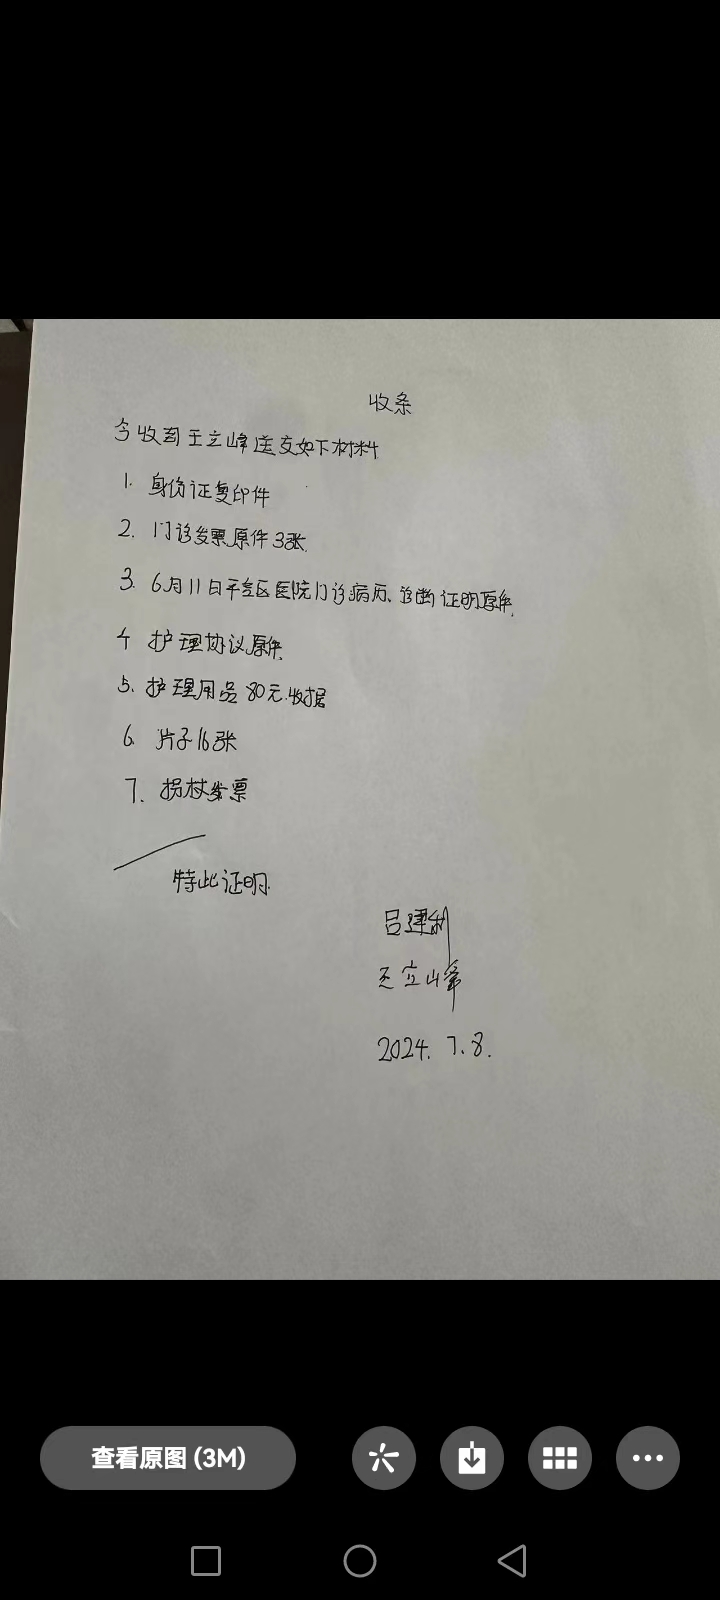 收条
今收到王立峰送交如下材料
1. 身份证复印件
2. 门诊发票原件3张.
3. 6月11日平谷区医院门诊病历、诊断证明原件.
4 护理协议原件.
5. 护理用品80元.收据
6. 片子16张
7. 拐杖发票
特此证明.
吕建利
王立峰
2024. 7. 8.
查看原图 (3M)